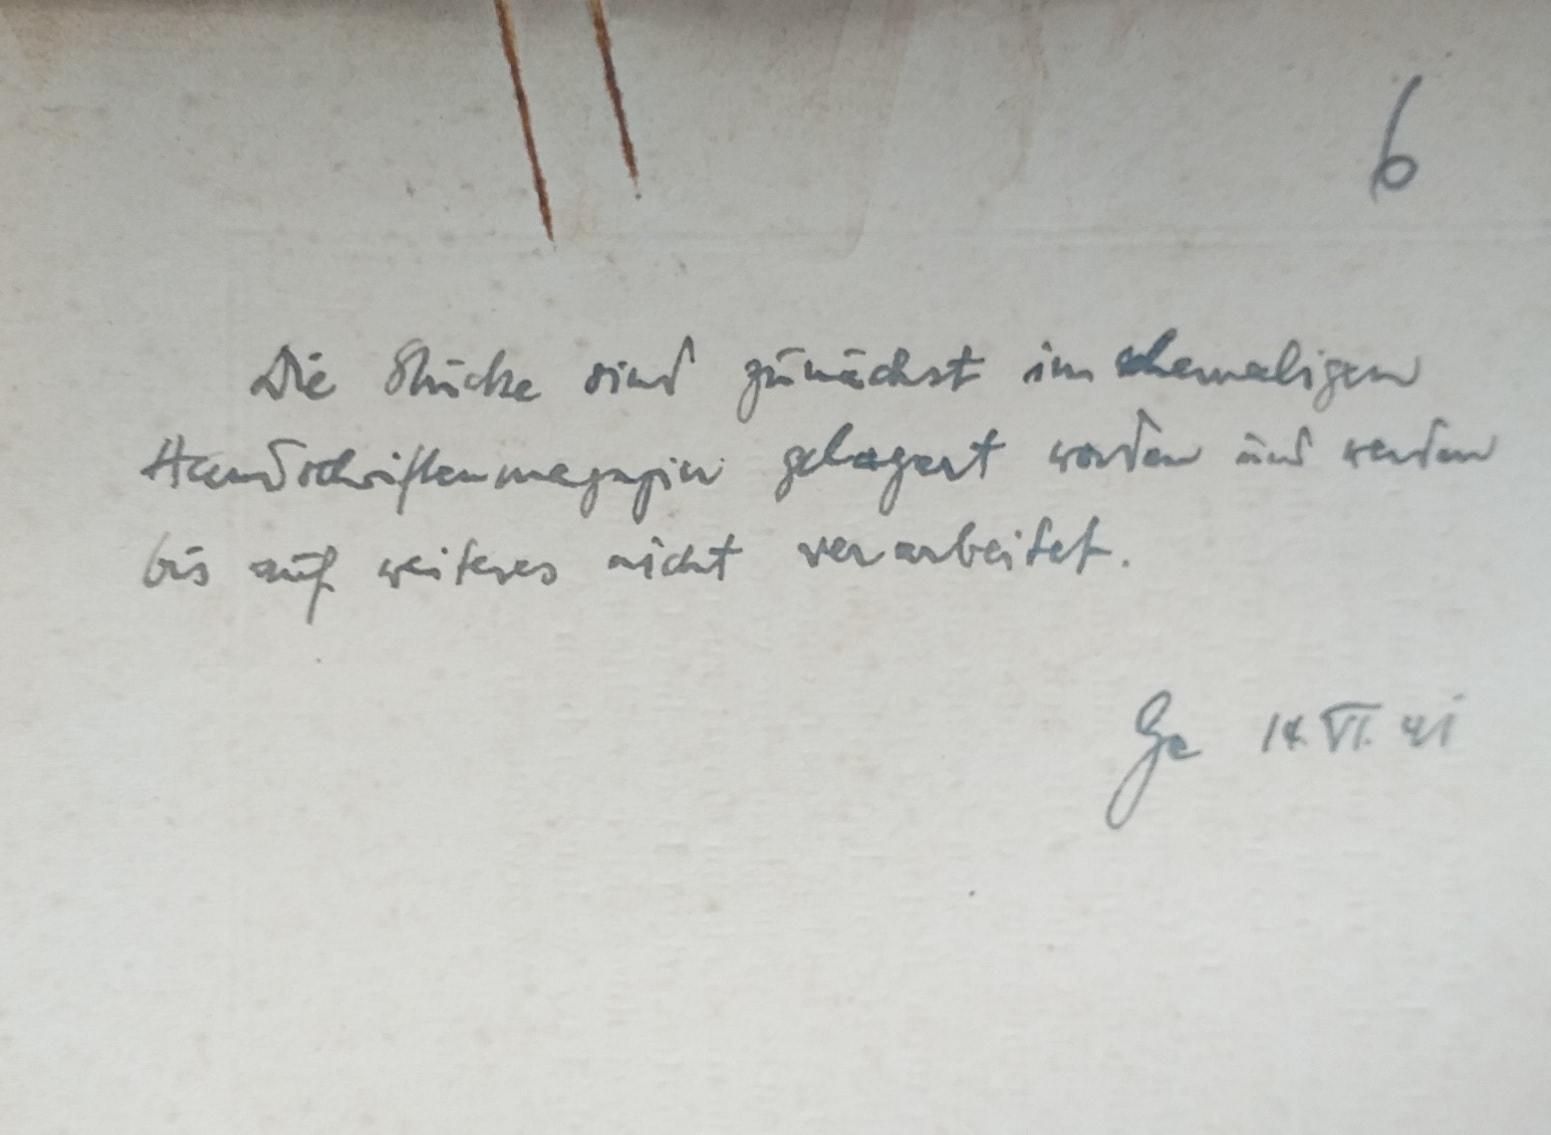 6
Die Stücke sind zunächst im ehemaligen
Handschriftenmagazin gelagert worden und werden
bis auf weiteres nicht verarbeitet.
Ge 14. VI. 41